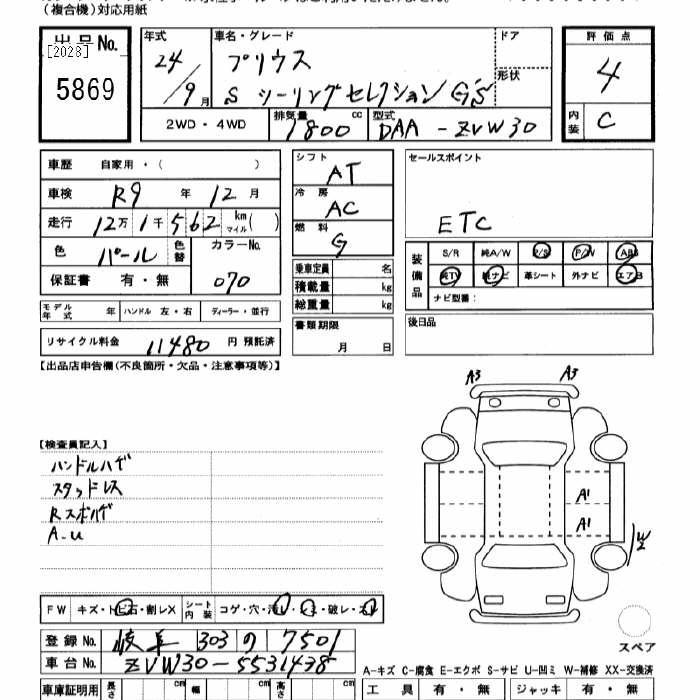 (複合機)対応用紙
出品No. [2028] 5869
年式 24/9月
車名・グレード プリウス
S ツーリングセレクション G'S
ドア
形状
評価点 4
内装 C
2WD・4WD 排気量 1800 cc 型式 DAA-ZVW30
車歴 自家用・( )
車検 R9 年 12 月
走行 12万1千562 km マイル( )
色 パール 色替 カラーNo. 070
保証書 有・無
モデル年式 年 ハンドル 左・右 ディーラー・並行
リサイクル料金 11480 円 預託済
シフト AT
冷房 AC
燃料 G
乗車定員 名
積載量 kg
総重量 kg
書類期限 月 日
セールスポイント
ETC
装備品 S/R 純A/W P/S P/W ABS
純TV 純ナビ 革シート 外ナビ エアB
ナビ型番:
後日品
【出品店申告欄(不良箇所・欠品・注意事項等)】
A3 A3
A1
A1
W2
スペア
【検査員記入】
ハンドルハゲ
スタッドレス
Rスポハゲ
A-U
FW キズ・トビ石・割レX シート内装 コゲ・穴・汚レ・シミ・破レ・スレ
登録No. 岐阜 303 の 7501
車台No. ZVW30-5531438
A-キズ C-腐食 E-エクボ S-サビ U-凹ミ W-補修 XX-交換済
車庫証明用 長さ cm 幅 cm 高さ cm
工具 有・無 ジャッキ 有・無